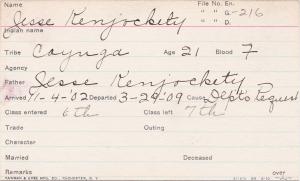 Name File No. En.
Jesse Kenjockety " " G. -216
Indian name " " D.
Tribe Cayuga Age 21 Blood 7
Agency
Father Jesse Kenjockety
Arrived 11-4-'02 Departed 3-29-'09 Cause Dept's Request
Class entered 6th Class left 7th
Trade Outing
Character
Married Deceased
Remarks over